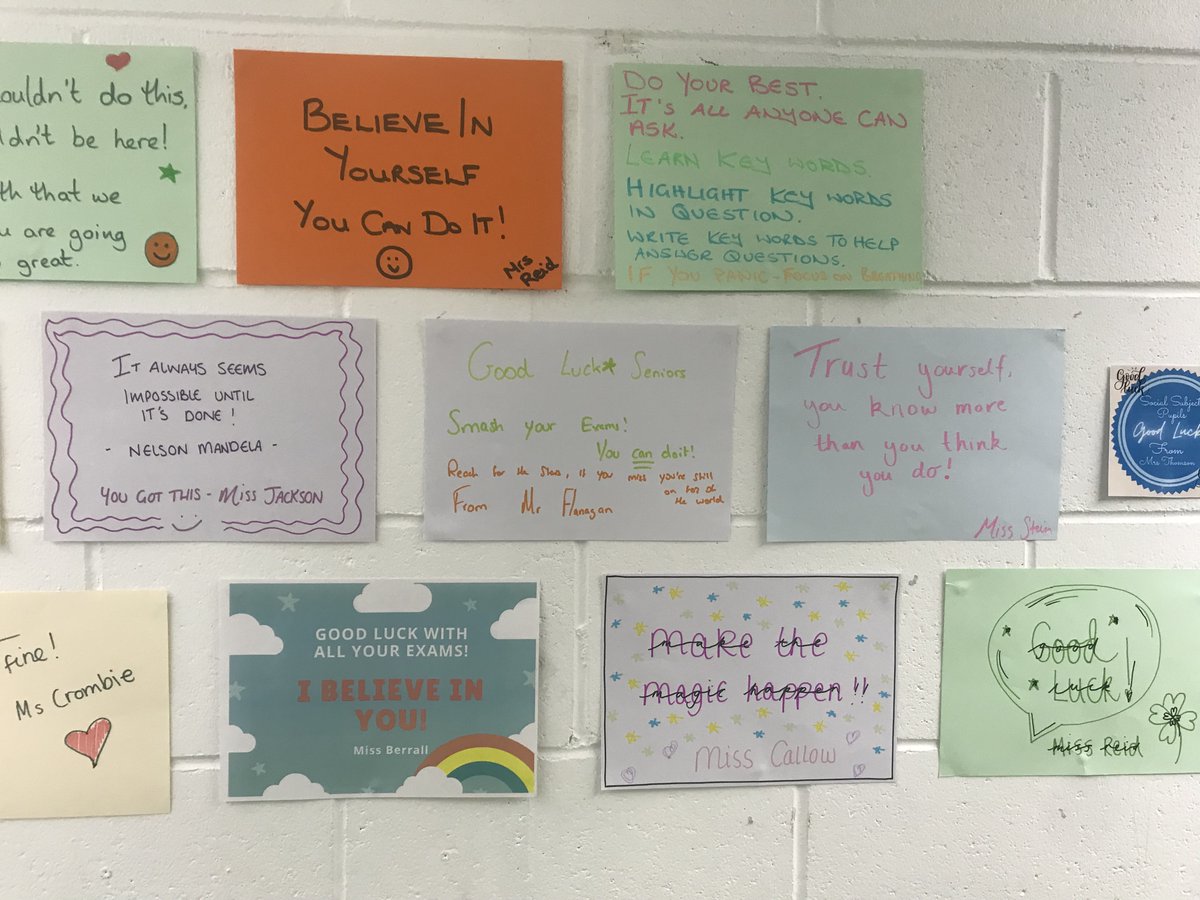 ouldn't do this,
ldn't be here!
th that we
u are going
great.
BELIEVE IN
YOURSELF
YOU CAN DO IT!
Mrs
Reid
DO YOUR BEST.
IT'S ALL ANYONE CAN
ASK.
LEARN KEY WORDS.
HIGHLIGHT KEY WORDS
IN QUESTION.
WRITE KEY WORDS TO HELP
ANSWER QUESTIONS.
IF YOU PANIC - FOCUS ON BREATHING
IT ALWAYS SEEMS
IMPOSSIBLE UNTIL
IT'S DONE!
- NELSON MANDELA -
YOU GOT THIS - MISS JACKSON
Good Luck Seniors
Smash your Exams!
You can do it!
Reach for the Stars, if you miss you're still
on top of
the world
From Mr Flanagan
Trust yourself,
you know more
than you think
you do!
Miss Stein
Good
luck
Social Subject
Pupils
Good Luck
From
Mrs Thomson
Fine!
Ms Crombie
GOOD LUCK WITH
ALL YOUR EXAMS!
I BELIEVE IN
YOU!
Miss Berrall
make the
magic happen!!
Miss Callow
Good
Luck!
Miss Reid